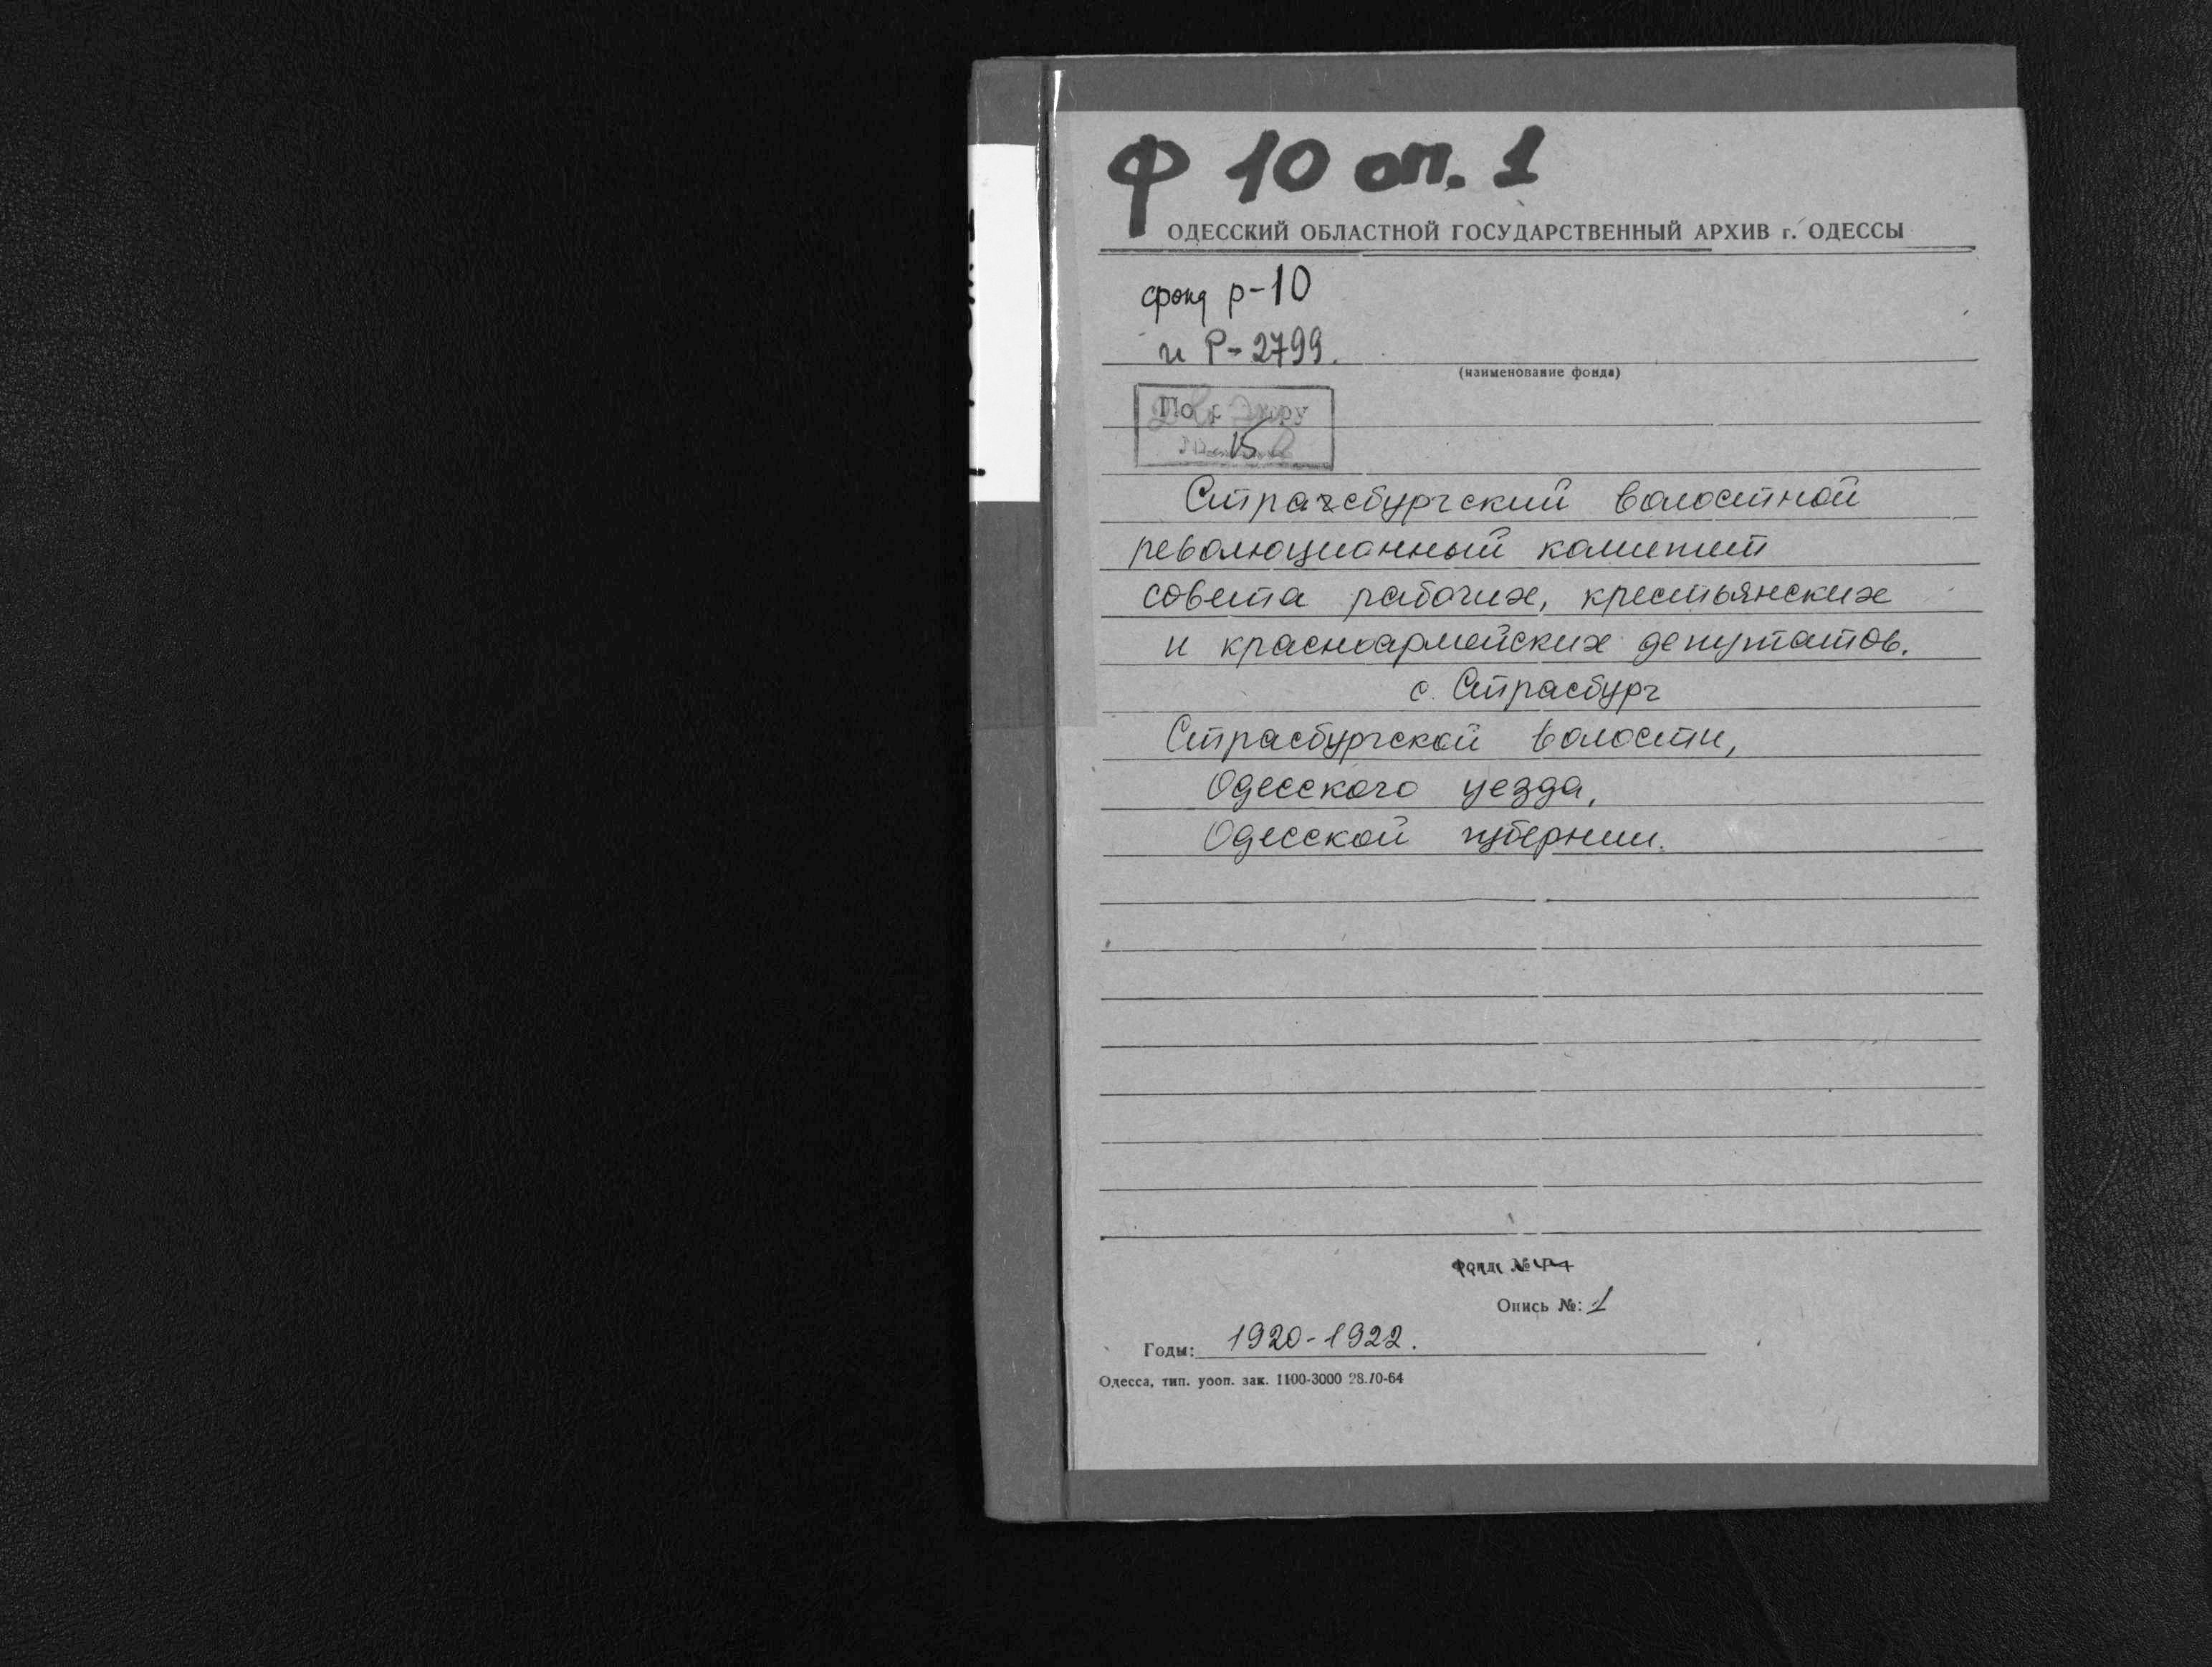 Ф 10 оп. 1
ОДЕССКИЙ ОБЛАСТНОЙ ГОСУДАРСТВЕННЫЙ АРХИВ г. ОДЕССЫ
фонд р-10
и Р-2799.
(наименование фонда)
15
Страгсбургский волостной
революционный комитет
совета рабочих, крестьянских
и красноармейских депутатов.
с. Страсбург
Страсбургской волости,
Одесского уезда,
Одесской губернии.
Фонд №
Опись №: 1
Годы: 1920-1922.
Одесса, тип. уооп. зак. 1100-3000 28.10-64